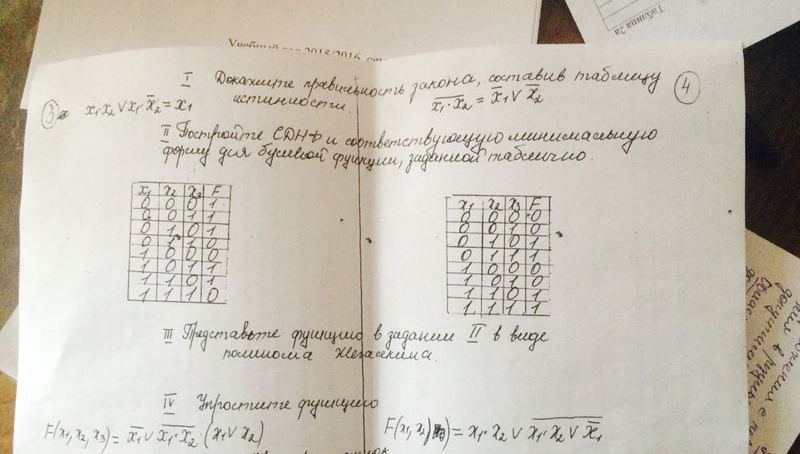 Учебный год 2015/2016, сем
Таблица 2а
I Докажите правильность закона, составив таблицу
истинности.
③ x₁·x₂ ∨ x₁·x̅₂ = x₁
④ x̅₁̅·̅x̅₂̅ = x̅₁ ∨ x̅₂
II Постройте СДНФ и соответствующую минимальную
форму для булевой функции, заданной таблично.
x₁ x₂ x₃ F
0 0 0 1
0 0 1 1
0 1 0 1
0 1 1 0
1 0 0 0
1 0 1 1
1 1 0 1
1 1 1 0
x₁ x₂ x₃ F
0 0 0 0
0 0 1 0
0 1 0 1
0 1 1 1
1 0 0 0
1 0 1 0
1 1 0 1
1 1 1 1
III Представьте функцию в задании II в виде
полинома Жегалкина.
IV Упростите функцию
F(x₁, x₂, x₃) = x̅₁ ∨ x̅₁̅·̅x̅₂̅ · (x₁ ∨ x₂)
F(x₁, x₂) = x₁·x₂ ∨ x̅₁̅·̅x̅₂̅ ̅∨̅ ̅x̅₁̅